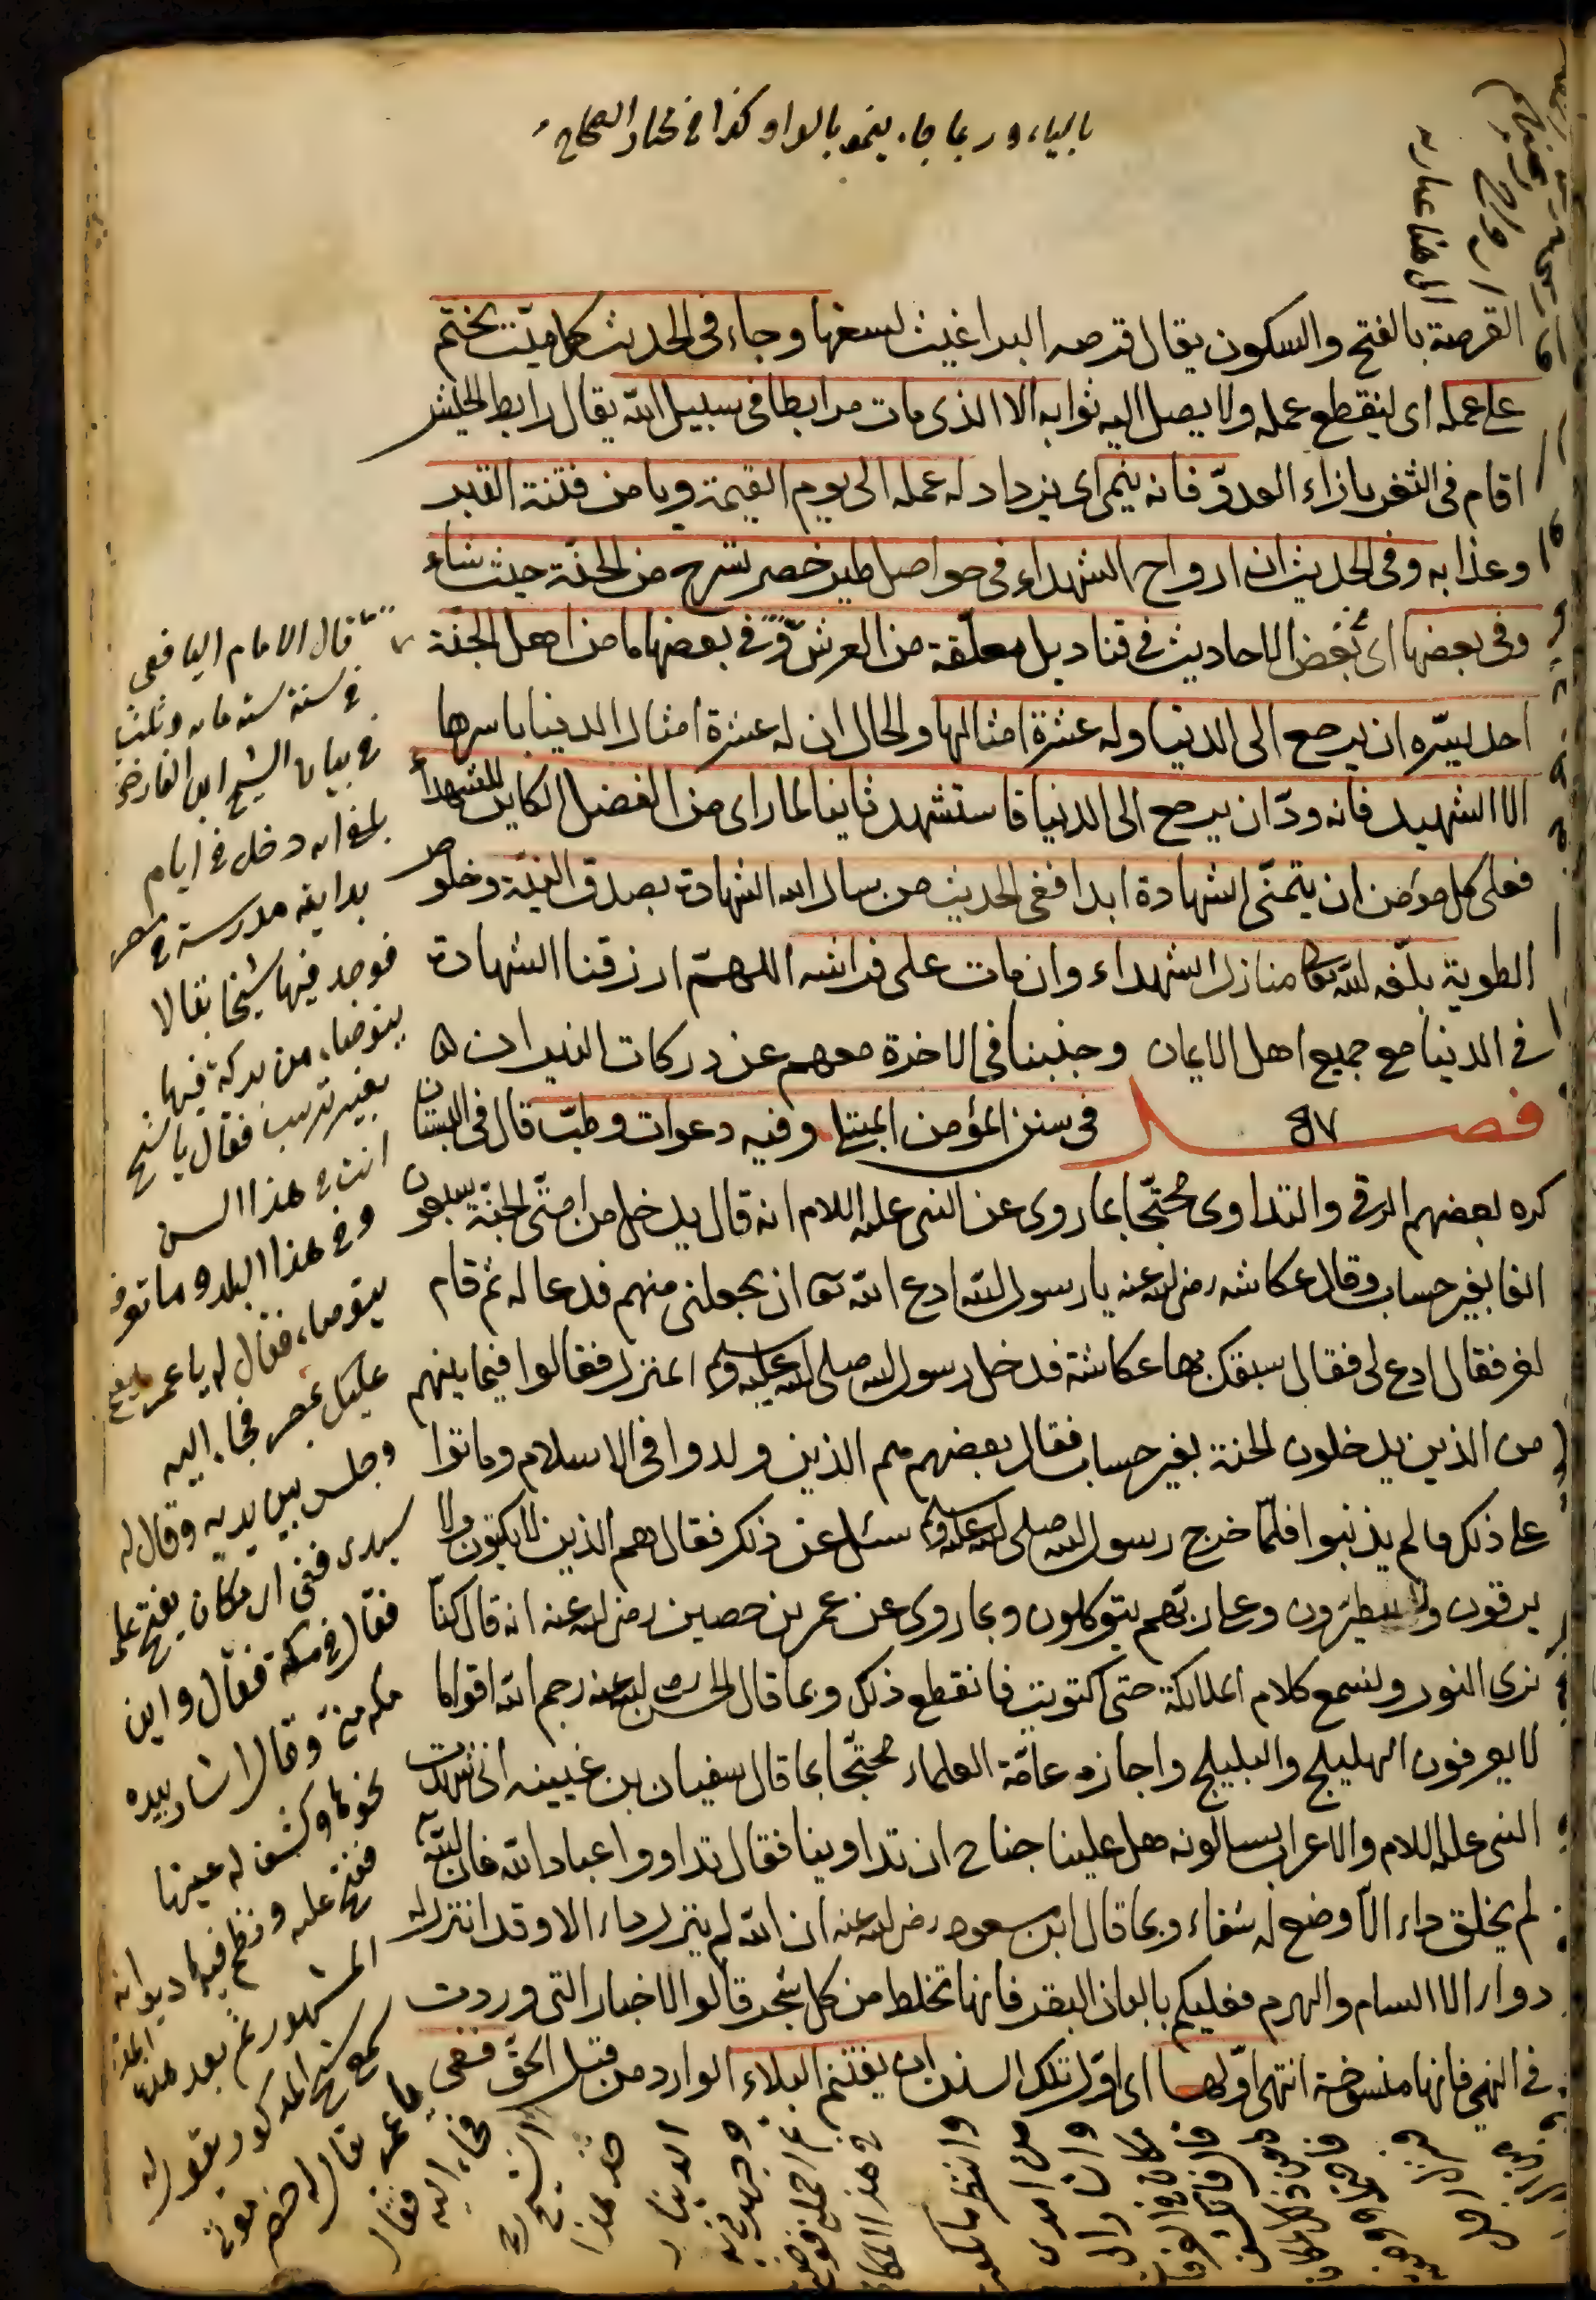 بالياء وربما جاء ينمو بالواو كذا في مختار الصحاح
القرصة بالفتح والسكون يقال قرصه البراغيث لسعها وجاء في الحديث كل ميّت يختم
على عمله اى ينقطع عمله ولا يصل اليه ثوابه الا الذى مات مرابطا فى سبيل الله يقال رابط الجيش
اقام فى الثغر بازاء العدوّ فانه ينمى اى يزداد له عمله الى يوم القيمة ويامن فتنة القبر
وعذابه وفى الحديث ان ارواح الشهداء فى حواصل طير خضر تسرح من الجنّة حيث شاء
وفى بعضها اى بعض الاحاديث فى قناديل معلّقة من العرش وفى بعضها ما من اهل الجنّة
احد يسّره ان يرجع الى الدنيا وله عشرة امثالها والحال ان له عشرة امثال الدنيا باسرها
الا الشهيد فانه ودّ ان يرجع الى الدنيا فاستشهد ثانيا لما راى من الفضل الكاين للشهداء
فعلى كل مؤمن ان يتمنّى الشهادة ابدا ففى الحديث من سال الله الشهادة بصدق النيّة وخلوص
الطوية بلّغه الله تعالى منازل الشهداء وان مات على فراشه اللهمّ ارزقنا الشهادة
فى الدنيا مع جميع اهل الايمان وجنبنا فى الاخرة معهم عن دركات النيران
فصل فى سنن المؤمن المبتلى وفيه دعوات وطبّ قال فى البستان
كره بعضهم الرقى والتداوى محتجّا بما روى عن النبى عليه السلام انه قال يدخل من امتى الجنّة سبعون
الفا بغير حساب وقال عكاشه رضى الله عنه يا رسول الله ادع الله تعا ان يجعلنى منهم فدعا له ثم قام
اخر فقال ادع لى فقال سبقك بها عكاشة فدخل رسول الله صلى الله عليه وسلم المنزل فقالوا فيما بينهم
من الذين يدخلون الجنة بغير حساب فقال بعضهم هم الذين ولدوا فى الاسلام وماتوا
على ذلك ولم يذنبوا فلمّا خرج رسول الله صلى الله عليه وسلم سئل عن ذلك فقال هم الذين لا يكتوون ولا
يرقون ولا يتطيّرون وعلى ربّهم يتوكلون وبما روى عن عمر بن حصين رضى الله عنه انه قال كنّا
نرى النور ونسمع كلام الملائكة حتى اكتويت فانقطع ذلك وبما قال الحسن رضى الله عنه رحم الله اقواما
لا يعرفون الهليلج والبليلج واجازه عامّة العلماء محتجّا بما قال سفيان بن عيينه انى شهدت
النبى عليه السلام والاعراب يسالونه هل علينا جناح ان تداوينا فقال تداووا عباد الله فان الله
لم يخلق داء الّا وضع له شفاء وبما قال ابن مسعود رضى الله عنه ان الله لم ينزل داء الا وقد انزل له
دواء الا السام والهرم فعليكم بالبان البقر فانها تخلط من كل شجر قالوا الاخبار التى وردت
فى النهى فانها منسوخة انتهى اوّلها اى اوّل تلك السنن ان يغتنم البلاء الوارد من قبل الحقّ ففى
قال الامام اليافعى
فى سنة ستمائه وثلثين
فى بيان الشيخ ابن الفارض
بلغ انه دخل فى ايام
بدايته مدرسة فى مصر
فوجد فيها شيخا بقالا
يتوضاء من بركة فيها
بغير ترتيب فقال يا شيخ
انت فى هذا السن
وفى هذا البلد وما تعرف
يتوضاء فقال له يا عمر ما يفتح
عليك بمصر فجاء اليه
وجلس بين يديه وقال له
سيدى ففى اى مكان يفتح على
فقال فى مكة فقال واين
مكة منى وقال اشار بيده
نحوها وكشف له عينها
ففتح عليه ونظم فيها ديوانه
المشهور ثم بعد مدة
سمع شيخ المذكور يقول له
يا عمر تعال احضر موتى
فجاء اليه فقال
الشيخ
خذ هذا
الدينار
وجهزنى به
ثم احملنى فوضعنى
فى هذا المكان
وانتظر ما يكون
من امرى